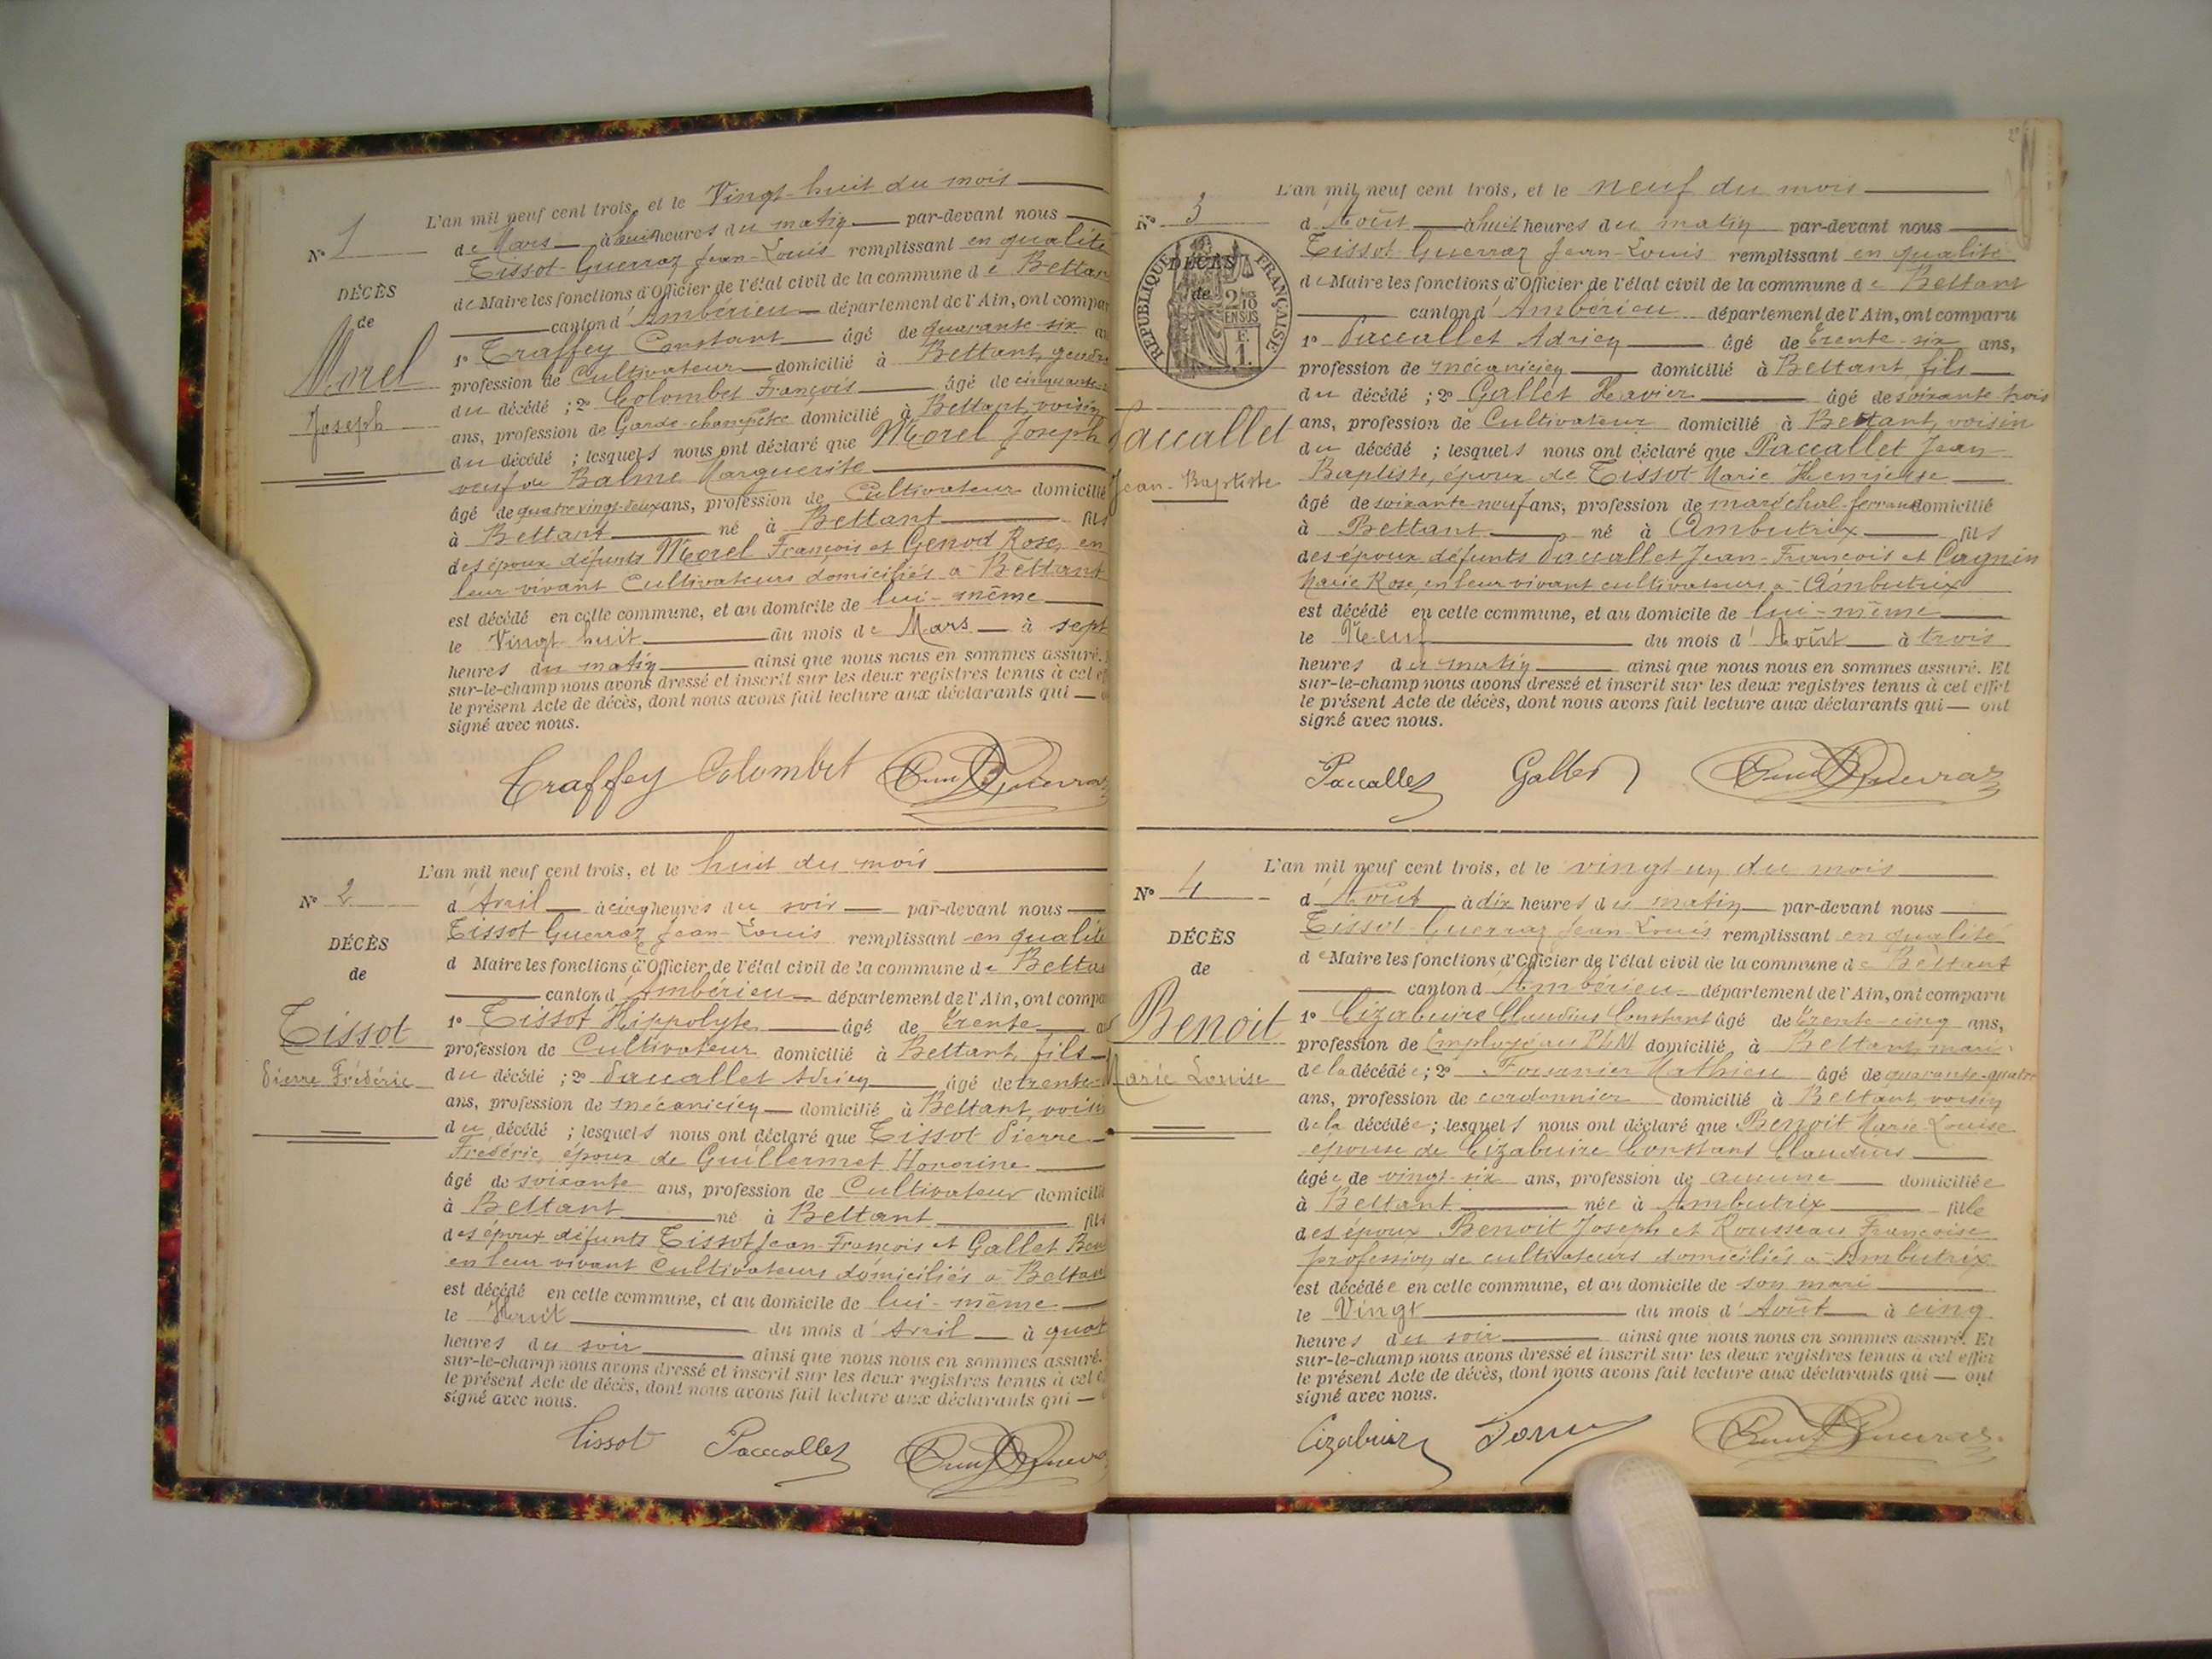 N° 1
DÉCÈS
de
Morel
Joseph
L'an mil neuf cent trois, et le Vingt-huit du mois
de Mars à huit heures du matin par-devant nous
Tissot-Guerraz Jean-Louis remplissant en qualité
de Maire les fonctions d'Officier de l'état civil de la commune de Bettan
canton d'Ambérieu département de l'Ain, ont compar
1° Traffey Constant âgé de quarante-six an
profession de Cultivateur domicilié à Bettant, gendre
du décédé ; 2° Colombet François âgé de cinquante
ans, profession de Garde-champêtre domicilié à Bettant, voisin
du décédé ; lesquels nous ont déclaré que Morel Joseph
veuf de Balme Marguerite
âgé de quatre vingt-deux ans, profession de Cultivateur domicilié
à Bettant né à Bettant fils
des époux défunts Morel François et Genod Rose, en
leur vivant Cultivateurs domiciliés à Bettant
est décédé en cette commune, et au domicile de lui-même
le Vingt huit du mois de Mars à sept
heures du matin ainsi que nous nous en sommes assuré.
sur-le-champ nous avons dressé et inscrit sur les deux registres tenus à cet ef
le présent Acte de décès, dont nous avons fait lecture aux déclarants qui — o
signé avec nous.
Traffey Colombet
N° 2
DÉCÈS
de
Tissot
Pierre Frédéric
L'an mil neuf cent trois, et le huit du mois
d'Avril à cinq heures du soir par-devant nous
Tissot-Guerraz Jean-Louis remplissant en qualité
d Maire les fonctions d'Officier de l'état civil de la commune de Bettan
canton d'Ambérieu département de l'Ain, ont compa
1° Tissot Hippolyte âgé de trente a
profession de Cultivateur domicilié à Bettant, fils
du décédé ; 2° Paccallet Adrien âgé de trente
ans, profession de mécanicien domicilié à Bettant, voisin
du décédé ; lesquels nous ont déclaré que Tissot Pierre
Frédéric, époux de Guillermet Honorine
âgé de soixante ans, profession de Cultivateur domicilié
à Bettant né à Bettant fils
des époux défunts Tissot Jean-François et Gallet Ben
en leur vivant Cultivateurs domiciliés à Bettan
est décédé en cette commune, et au domicile de lui-même
le Huit du mois d'Avril à quat
heures du soir ainsi que nous nous en sommes assuré.
sur-le-champ nous avons dressé et inscrit sur les deux registres tenus à cet e
le présent Acte de décès, dont nous avons fait lecture aux déclarants qui —
signé avec nous.
Tissot Paccallet
N° 3
RÉPUBLIQUE FRANÇAISE
2/10 EN SUS
F. 1.
DÉCÈS
de
Paccallet
Jean-Baptiste
L'an mil neuf cent trois, et le neuf du mois
d'Août à huit heures du matin par-devant nous
Tissot-Guerraz Jean-Louis remplissant en qualité
de Maire les fonctions d'Officier de l'état civil de la commune de Bettant
canton d'Ambérieu département de l'Ain, ont comparu
1° Paccallet Adrien âgé de trente-six ans,
profession de mécanicien domicilié à Bettant, fils
du décédé ; 2° Gallet Xavier âgé de soixante-trois
ans, profession de Cultivateur domicilié à Bettant, voisin
du décédé ; lesquels nous ont déclaré que Paccallet Jean
Baptiste, époux de Tissot Marie Henriette
âgé de soixante-neuf ans, profession de maréchal-ferrant domicilié
à Bettant né à Ambutrix fils
des époux défunts Paccallet Jean-François et Cagnin
Marie Rose, en leur vivant cultivateurs à Ambutrix
est décédé en cette commune, et au domicile de lui-même
le Neuf du mois d'Août à trois
heures du matin ainsi que nous nous en sommes assuré. Et
sur-le-champ nous avons dressé et inscrit sur les deux registres tenus à cet effet
le présent Acte de décès, dont nous avons fait lecture aux déclarants qui — ont
signé avec nous.
Paccallet Gallet
N° 4
DÉCÈS
de
Benoit
Marie Louise
L'an mil neuf cent trois, et le vingt un du mois
d'Août à dix heures du matin par-devant nous
Tissot-Guerraz Jean Louis remplissant en qualité
de Maire les fonctions d'Officier de l'état civil de la commune de Bettant
canton d Ambérieu département de l'Ain, ont comparu
1° Cizabuire Claudius Constant âgé de trente-cinq ans,
profession de Employé au PLM domicilié à Bettant, mari
de la décédée ; 2° Fournier Mathieu âgé de quarante-quatre
ans, profession de cordonnier domicilié à Bettant, voisin
de la décédée ; lesquels nous ont déclaré que Benoit Marie Louise
épouse de Cizabuire Constant Claudius
âgée de vingt-six ans, profession de aucune domiciliée
à Bettant née à Ambutrix fille
des époux Benoit Joseph et Rousseau Françoise
profession de cultivateurs domiciliés à Ambutrix
est décédée en cette commune, et au domicile de son mari
le Vingt du mois d'Août à cinq
heures du soir ainsi que nous nous en sommes assuré. Et
sur-le-champ nous avons dressé et inscrit sur les deux registres tenus à cet effet
le présent Acte de décès, dont nous avons fait lecture aux déclarants qui — ont
signé avec nous.
Cizabuire